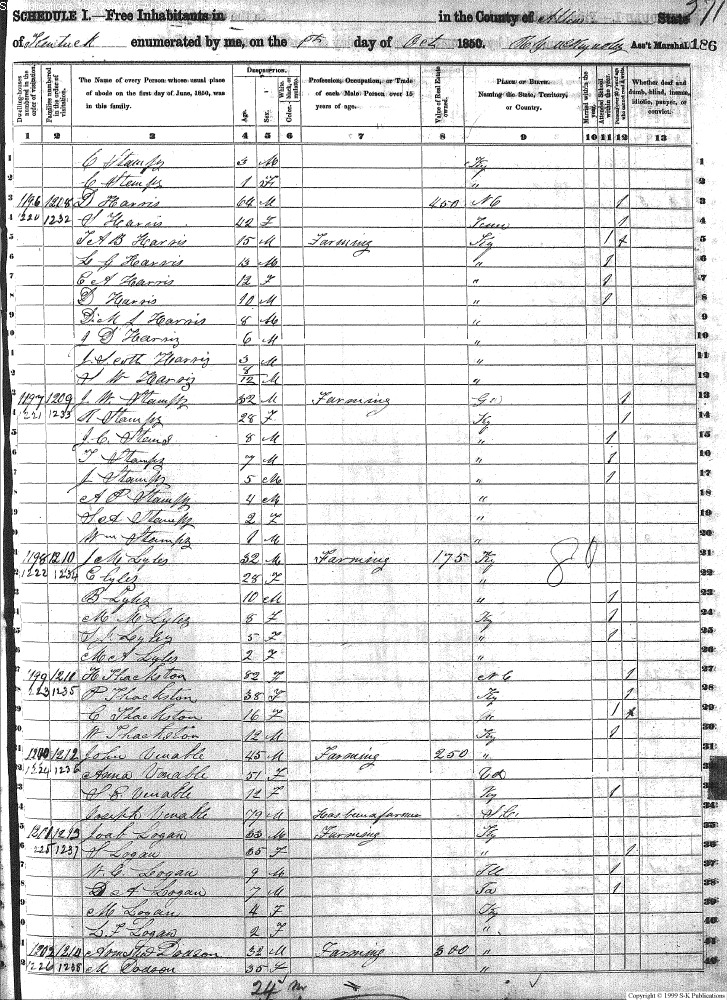 SCHEDULE I.—Free Inhabitants in in the County of Allen State
of Kentuck enumerated by me, on the day of Oct 1850. Ass't Marshal. 186
Dwelling-houses numbered in the order of visitation.
Families numbered in the order of visitation.
The Name of every Person whose usual place of abode on the first day of June, 1850, was in this family.
DESCRIPTION.
Age.
Sex.
Color, White, black, or mulatto.
Profession, Occupation, or Trade of each Male Person over 15 years of age.
Value of Real Estate owned.
PLACE OF BIRTH. Naming the State, Territory, or Country.
Married within the year.
Attended School within the year.
Whether deaf and dumb, blind, insane, idiotic, pauper, or convict.
1 2 3 4 5 6 7 8 9 10 11 12 13
1 C Stamps 3 M Ky
2 C Stamps 1 F "
3 1196 1218 D Harris 64 M 450 N C 1
4 1220 1232 S Harris 42 F Tenn 1
5 T A B Harris 15 M Farming Ky 1
6 L J Harris 13 M " 1
7 E A Harris 12 F " 1
8 D Harris 10 M " 1
9 D. M L Harris 8 M "
10 J D Harris 6 M "
11 J. Scott Harris 3 M "
12 S W Harris 8/12 M "
13 1197 1209 J. W. Stamps 32 M Farming Ga 1
14 1221 1233 R Stamps 28 F Ky 1
15 J. C. Stams 8 M " 1
16 T Stamps 7 M " 1
17 J Stamps 5 M " 1
18 A P Stamps 4 M "
19 S A Stamps 2 F "
20 Wm Stamps 1 M "
21 1198 1210 J M Lyles 32 M Farming 175 Ky
22 1222 1234 E Lyles 28 F "
23 B Lyles 10 M " 1
24 M M Lyles 8 F Ky 1
25 S J Lyles 5 F " 1
26 M A Lyles 2 F "
27 1199 1211 H Thackston 82 F N C 1
28 1223 1235 P Thackston 38 F Ky 1
29 C Thackston 16 F " 1
30 W Thackston 12 M Ky 1
31 1200 1212 John Venable 45 M Farming 250 "
32 1224 1236 Anna Venable 51 F Va
33 S E Venable 12 F Ky 1
34 Joseph Venable 79 M Has been a farmer S. C.
35 1201 1213 Joab Logan 33 M Farming Ky
36 1225 1237 S Logan 35 F " 1
37 W. C. Logan 9 M Ill 1
38 A Logan 7 M 1
39 M Logan 4 F Ky
40 L. F Logan 2 F "
41 1202 1214 Armsted Dodson 32 M Farming 300 "
42 1226 1238 M Dodson 35 F "
24 m
Copyright © 1999 S-K Publications